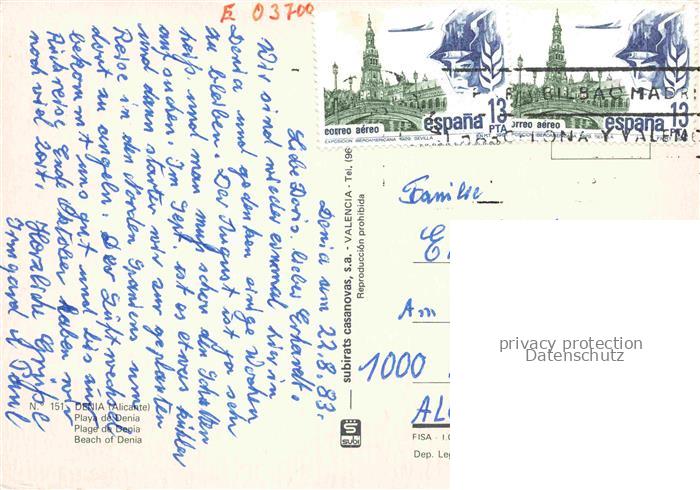 E 03700
Denia am 22.8.83.
Liebe Doris, lieber Erhardt,
Wir sind wieder einmal hier in
Denia und gedenken einige Wochen
zu bleiben. Der August ist ja sehr
heiß und man muß schon den Schatten
aufsuchen. Im Sept. ist es etwas kühler
und dann starten wir zur geplanten
Reise in den Norden Spaniens um
dort zu angeln. Der Luftwechsel
bekommt uns gut und bis zur
Rückreise Ende Oktober haben wir
noch viel Zeit.
Herzliche Grüße
Irmgard u. Paul
correo aéreo
españa 13
PTA
EXPOSICION IBEROAMERICANA 1929. SEVILLA
correo aéreo
españa 13
PTA
EXPOSICION IBEROAMERICANA 1929. SEVILLA
BILBAO MADRI
ONA Y VALENC
Familie
Am
1000
subirats casanovas, s.a. - VALENCIA - Tel. (96
Reproducción prohibida
subi
FISA - I.G
Dep. Leg
N.° 151 DENIA (Alicante)
Playa de Denia
Plage de Denia
Beach of Denia
privacy protection
Datenschutz